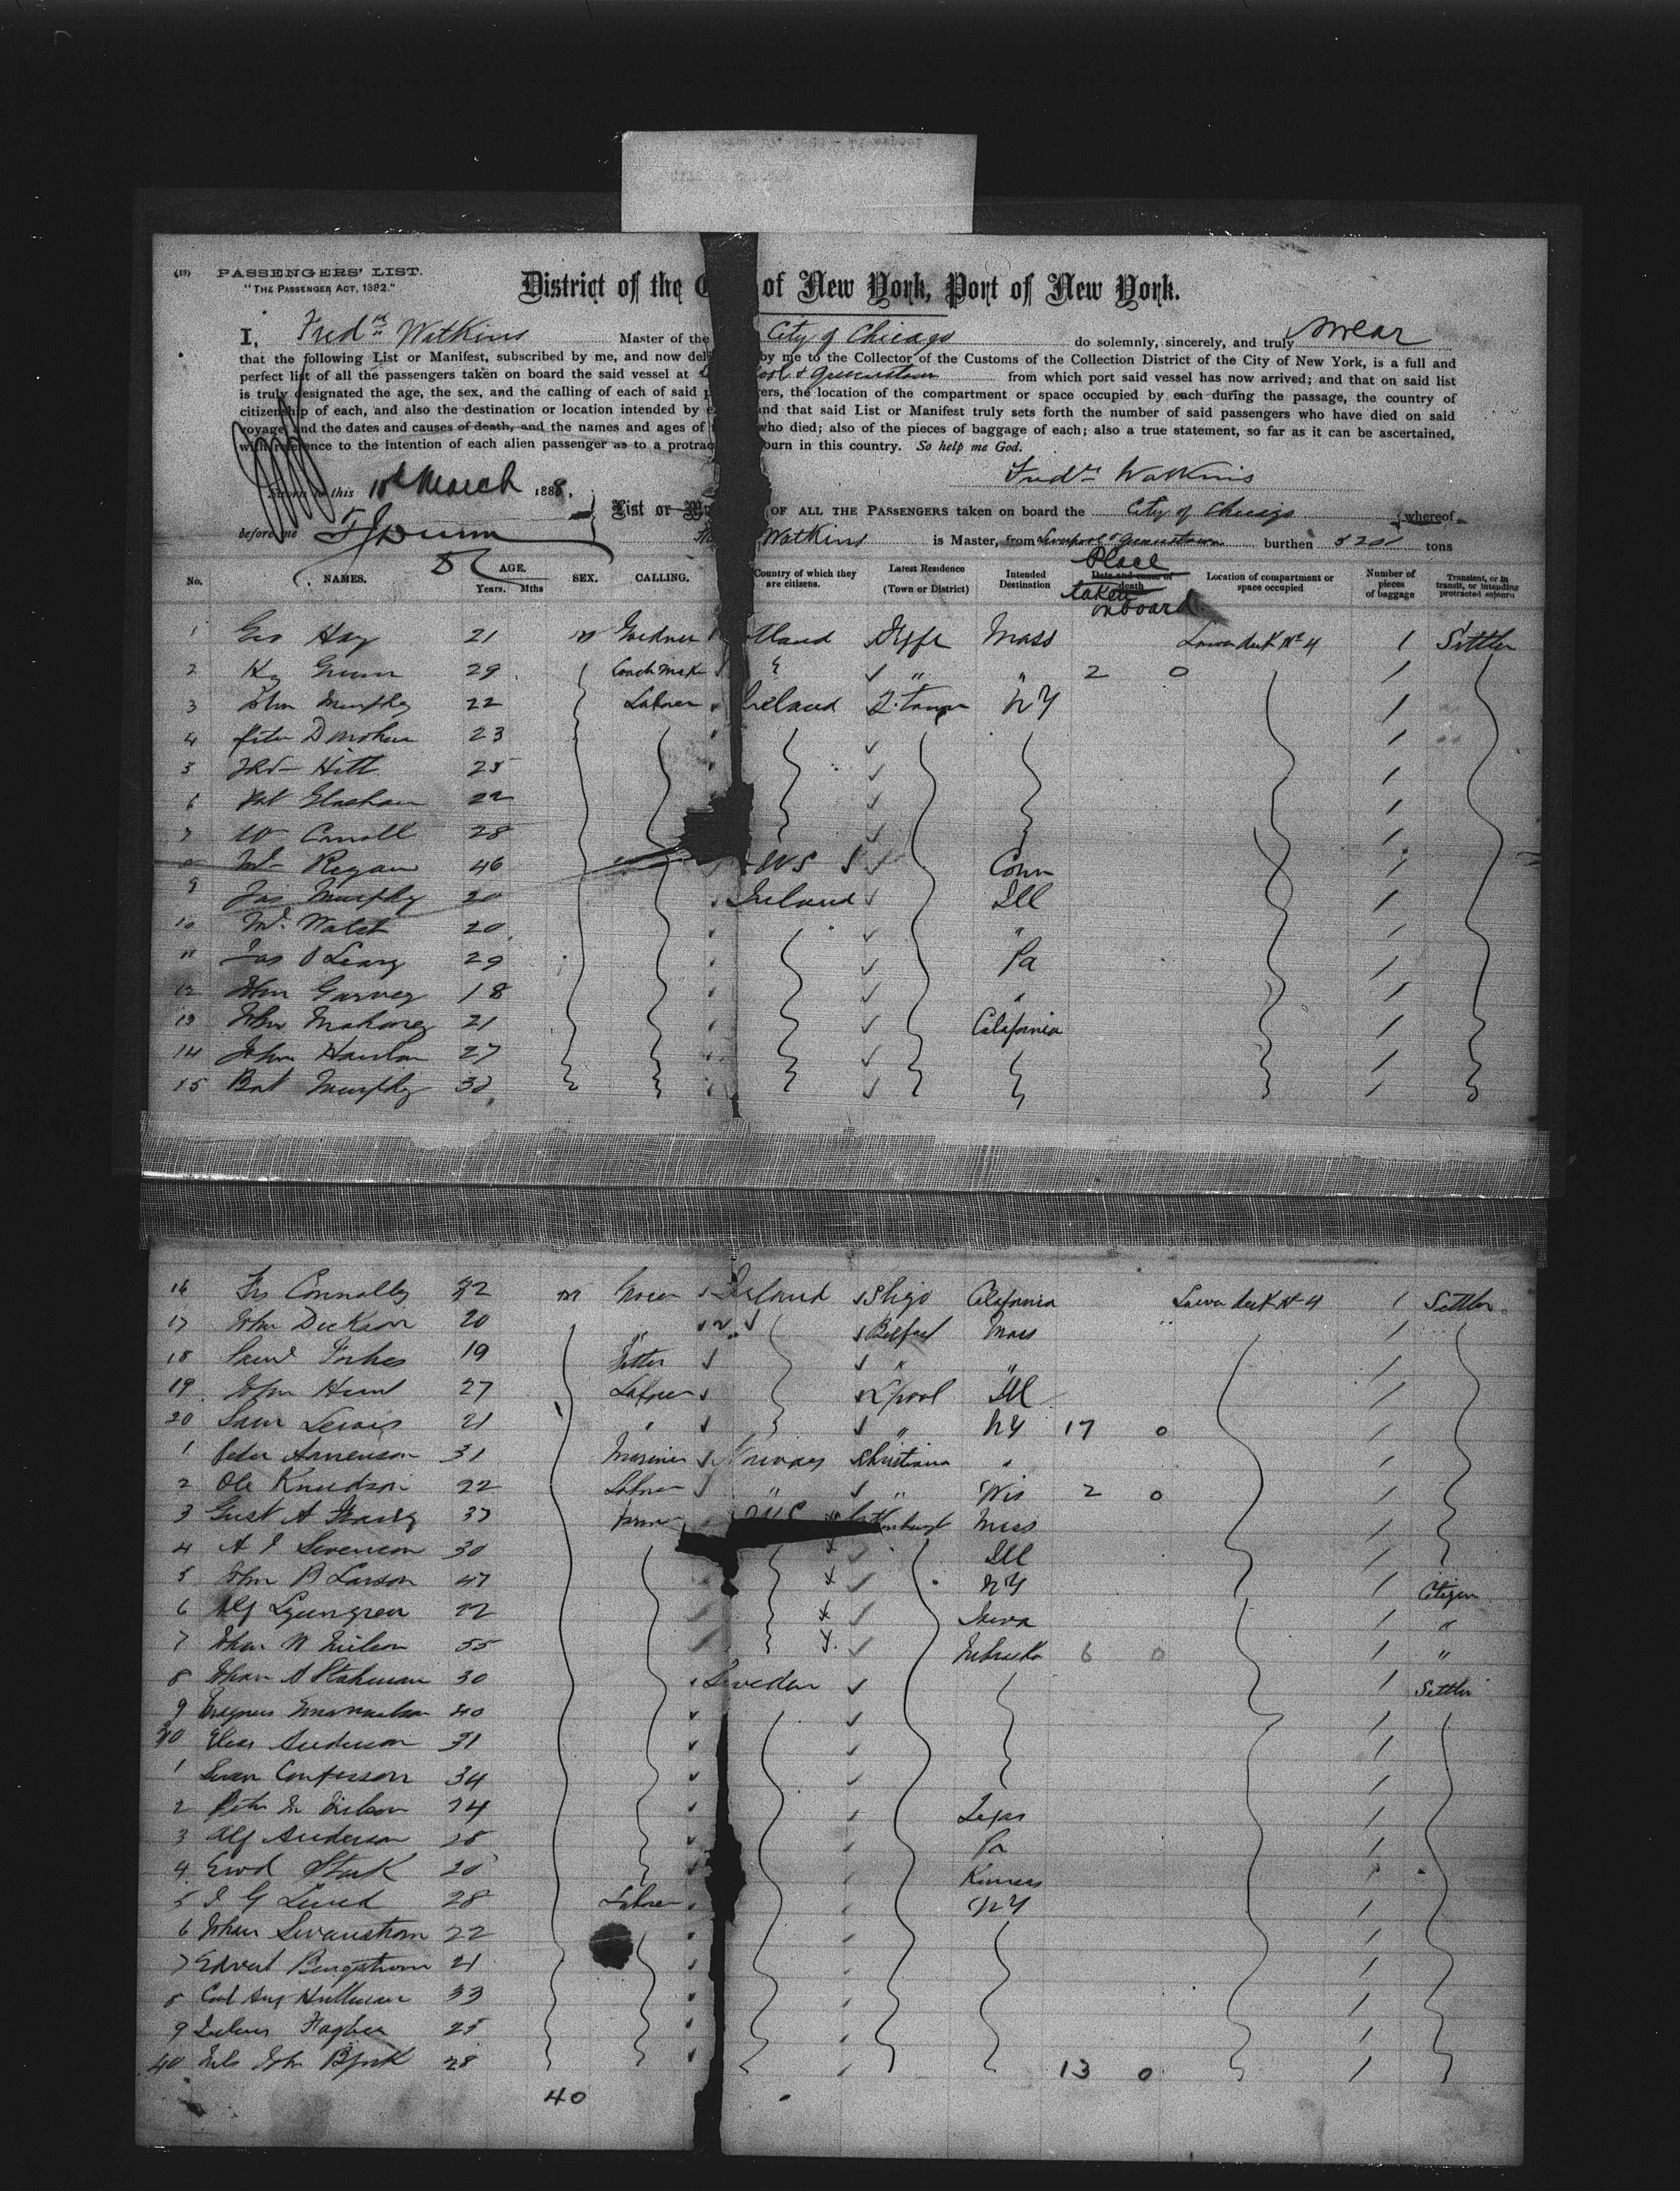 (19) PASSENGERS' LIST.
"THE PASSENGER ACT, 1882."
District of the C of New York, Port of New York.
I, Fredk Watkins Master of the City of Chicago do solemnly, sincerely, and truly swear
that the following List or Manifest, subscribed by me, and now del by me to the Collector of the Customs of the Collection District of the City of New York, is a full and
perfect list of all the passengers taken on board the said vessel at L ool & Queenstown from which port said vessel has now arrived; and that on said list
is truly designated the age, the sex, and the calling of each of said p ers, the location of the compartment or space occupied by each during the passage, the country of
citizenship of each, and also the destination or location intended by e and that said List or Manifest truly sets forth the number of said passengers who have died on said
voyage, and the dates and causes of death, and the names and ages of t who died; also of the pieces of baggage of each; also a true statement, so far as it can be ascertained,
with reference to the intention of each alien passenger as to a protrac ourn in this country. So help me God.
Fredk Watkins
Sworn to this 10th March 1888,
before me
List or M OF ALL THE PASSENGERS taken on board the City of Chicago whereof
Watkins is Master, from Liverpool & Queenstown burthen 5201 tons
No. NAMES. AGE. Years. Mths SEX. CALLING. Country of which they are citizens. Latest Residence (Town or District) Intended Destination Date and cause of death Place taken onboard Location of compartment or space occupied Number of pieces of baggage Transient, or in transit, or intending protracted sojourn
1 Geo Hay 21 m Gardner otland Mass Lower deck No 4 1 Settler
2 Hy Gunn 29 Coach Maker " " 2 0 1
3 John Murphy 22 Laborer Ireland Q. Town NY 1
4 Peter Donohue 23 1
5 Hill 25 1
6 Pat 22 1
7 Wm Carroll 28 1
8 Regan 46 US Conn 1
9 Jas Murphy 20 Ireland Ill 1
10 Walsh 20 "
11 Jas O'Leary 29 Pa 1
12 John Garvey 18 " 1
13 John Mahoney 21 California 1
14 John Hanlon 27 1
15 Bat Murphy 1
16 Connolly m Ireland Sligo California Lower deck No 4 1 Settler
17 John Dickson 20 " " Belfast Mass 1
18 Saml Forbes 19 Fitter " " 1
19 John Hunt 27 Laborer L'pool Ill 1
20 Saml Lewis 21 " " NY 17 0 1
1 Peter 31 Mariner Norway Christiana " 1
2 Ole Knudson 22 Laborer " " Wis 2 0 1
3 Gust A 37 US 1
4 A Swenson 30 Ill 1
5 John B Larson 47 NY 1 Citizen
6 Alf Ljungren 22 Iowa 1 "
7 Johan N Nilson 55 Nebraska 6 0 1 "
8 Johan A 30 Sweden 1 Settler
9 Magnus 40 1
30 Anderson 31 1
1 Swan 34 1
2 Peter Nilson 24 Texas 1
3 Alf Anderson 28 Pa 1
4 Stark Kansas 1
5 28 Laborer NY 1
6 Johan Swanstrom 22 1
7 Bengstrom 21 1
8 Carl Aug 33 1
9 25 1
40 Nils Joh Bjork 28 13 0 1
40